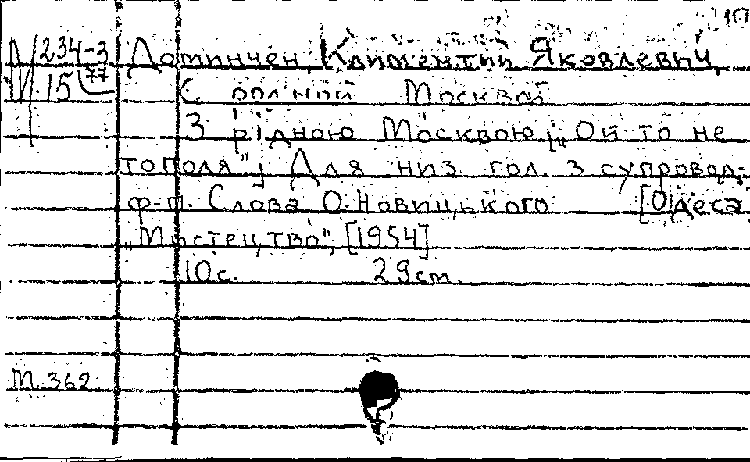 М 234-3 Доминчен, Климентий Яковлевич
15 77 С родной Москвой
З рідною Москвою; „Ой то не
тополя"; Для низ. гол. з супровод.
ф-п. Слова О. Новицького [Одеса
„Мистецтво", [1954]
10 с. 29 см.
М. 362